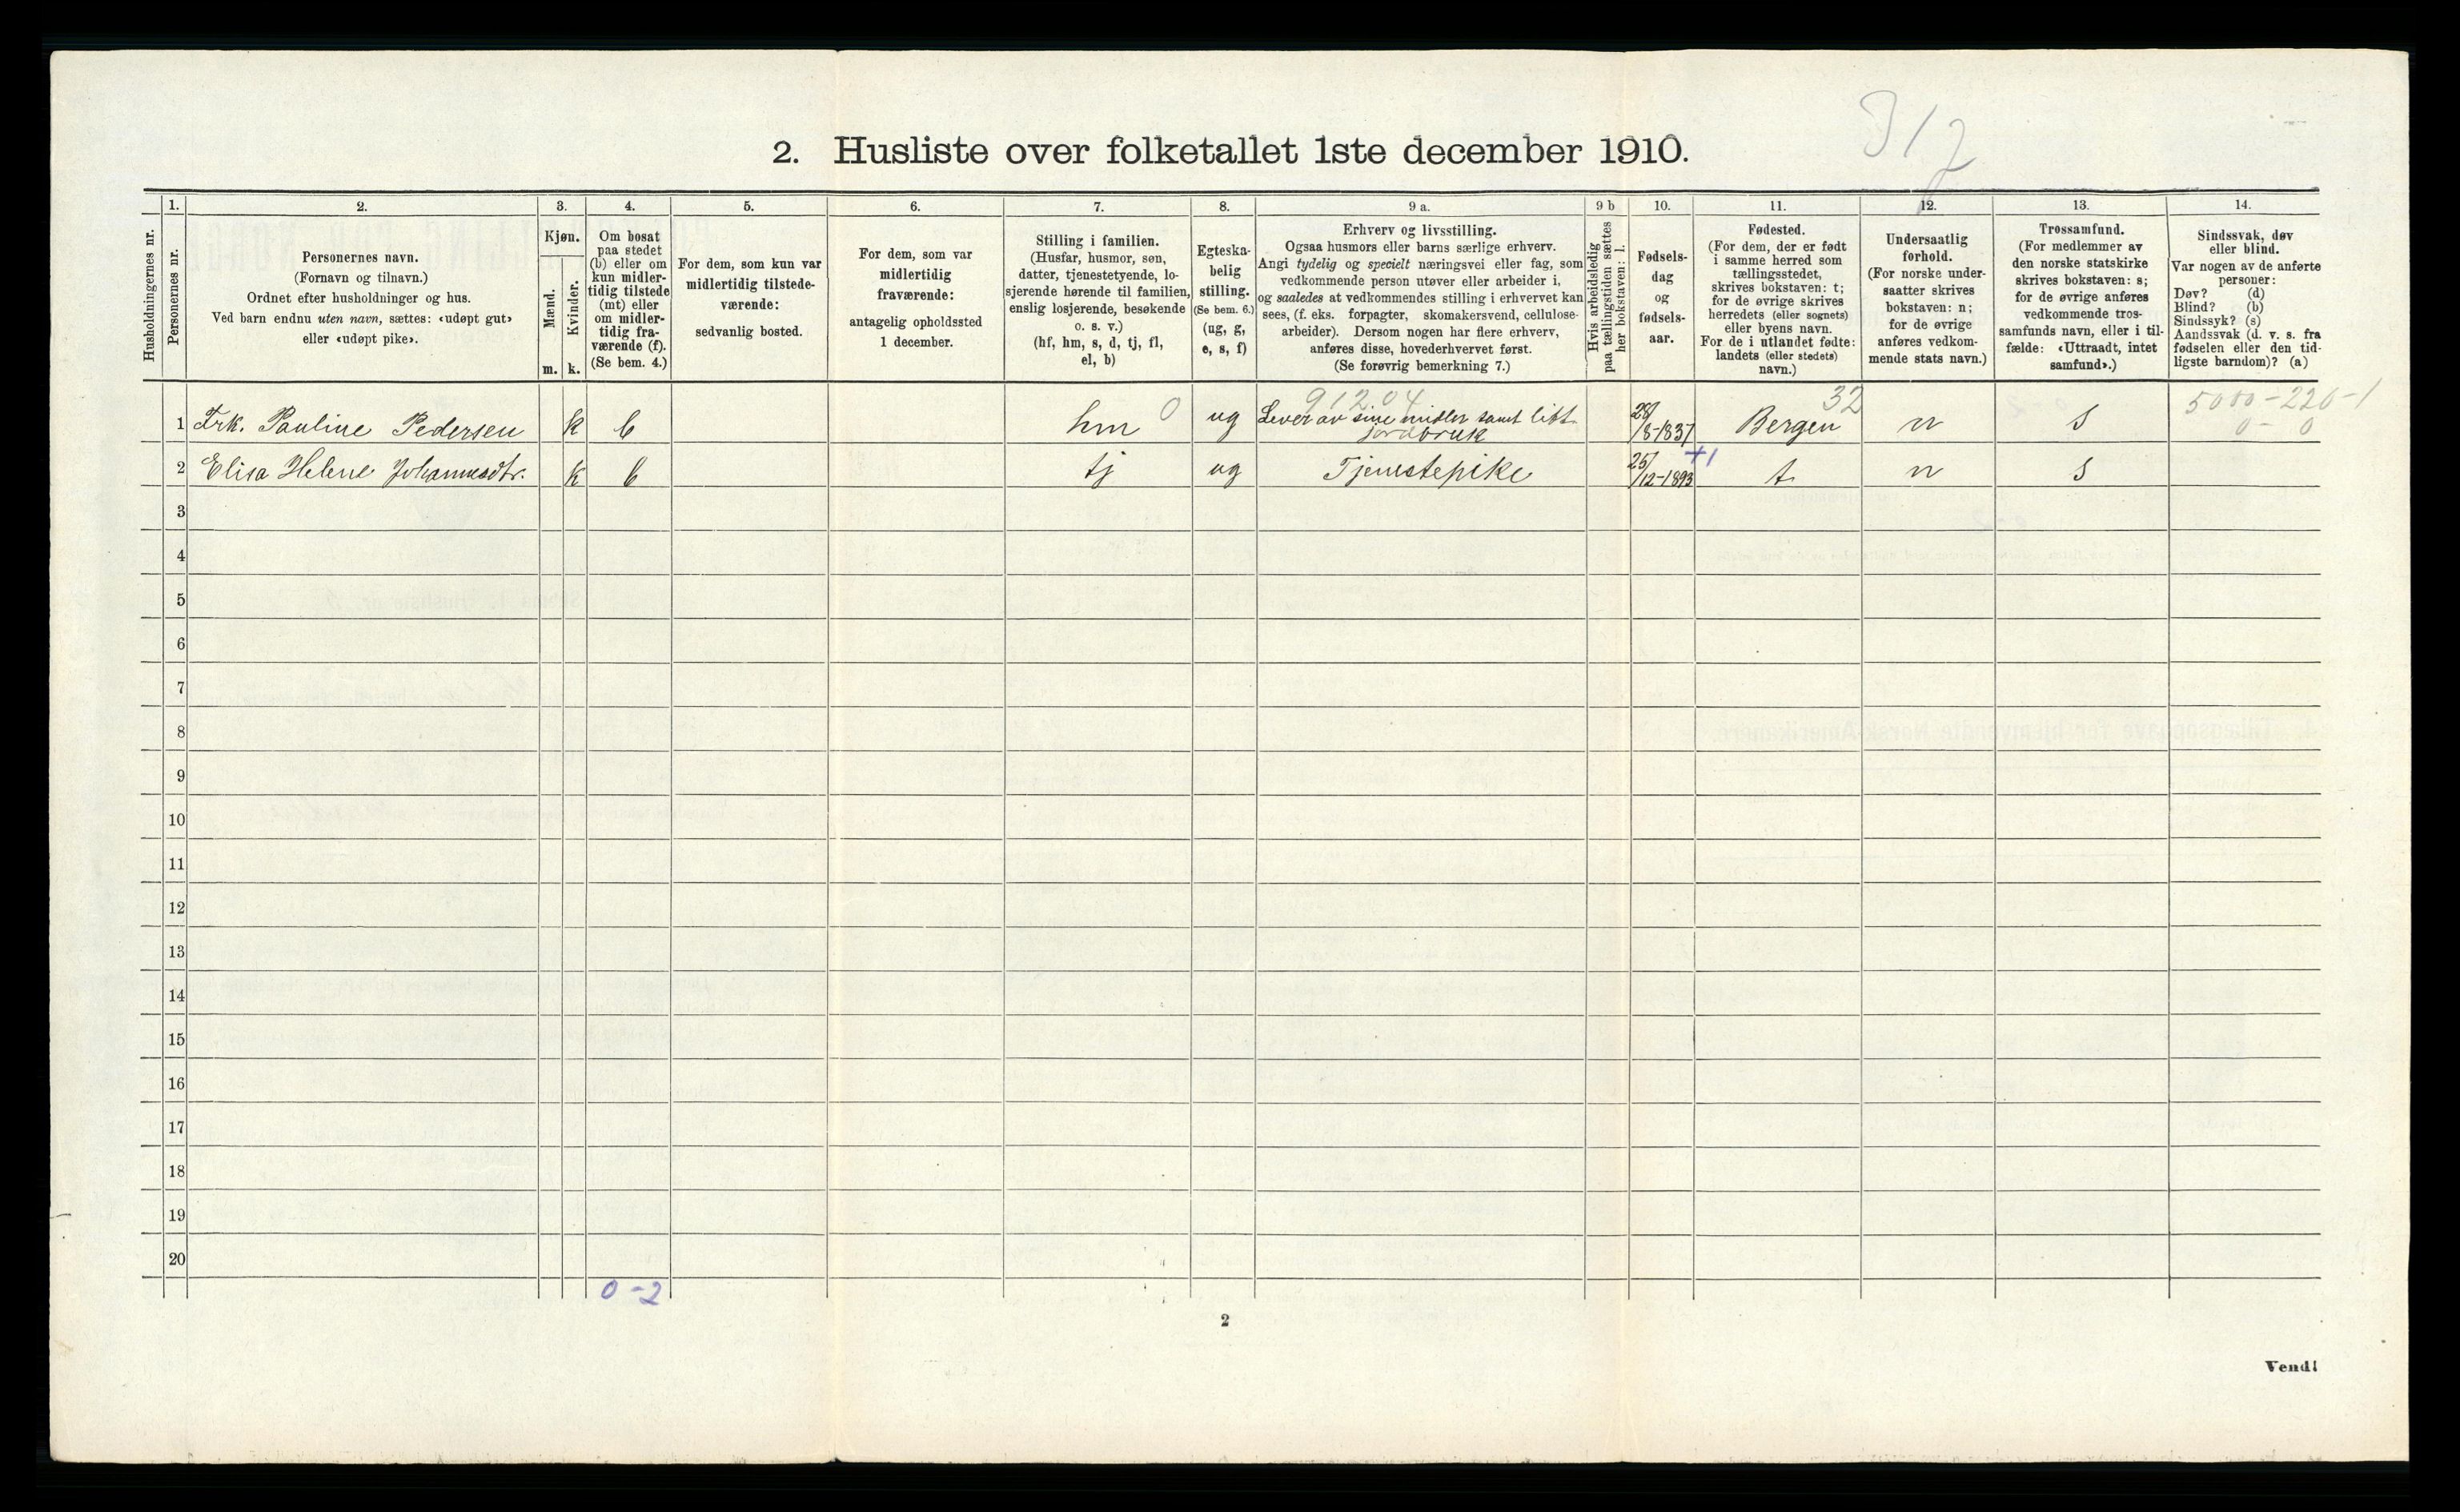 317
2. Husliste over folketallet 1ste december 1910.
Husholdningernes nr.
1.
Personernes nr.
2.
Personernes navn.
(Fornavn og tilnavn.)
Ordnet efter husholdninger og hus.
Ved barn endnu uten navn, sættes: «udøpt gut»
eller «udøpt pike».
3.
Kjøn.
Mænd.
Kvinder.
m. k.
4.
Om bosat
paa stedet
(b) eller om
kun midler-
tidig tilstede
(mt) eller
om midler-
tidig fra-
værende (f).
(Se bem. 4.)
5.
For dem, som kun var
midlertidig tilstede-
værende:
sedvanlig bosted.
6.
For dem, som var
midlertidig
fraværende:
antagelig opholdssted
1 december.
7.
Stilling i familien.
(Husfar, husmor, søn,
datter, tjenestetyende, lo-
sjerende hørende til familien,
enslig losjerende, besøkende
o. s. v.)
(hf, hm, s, d, tj, fl,
el, b)
8.
Egteska-
belig
stilling.
(Se bem. 6.)
(ug, g,
e, s, f)
9 a.
Erhverv og livsstilling.
Ogsaa husmors eller barns særlige erhverv.
Angi tydelig og specielt næringsvei eller fag, som
vedkommende person utøver eller arbeider i,
og saaledes at vedkommendes stilling i erhvervet kan
sees, (f. eks. forpagter, skomakersvend, cellulose-
arbeider). Dersom nogen har flere erhverv,
anføres disse, hovederhvervet først.
(Se forøvrig bemerkning 7.)
9 b
Hvis arbeidsledig
paa tællingstiden sættes
her bokstaven: l.
10.
Fødsels-
dag
og
fødsels-
aar.
11.
Fødested.
(For dem, der er født
i samme herred som
tællingsstedet,
skrives bokstaven: t;
for de øvrige skrives
herredets (eller sognets)
eller byens navn.
For de i utlandet fødte:
landets (eller stedets)
navn.)
12.
Undersaatlig
forhold.
(For norske under-
saatter skrives
bokstaven: n;
for de øvrige
anføres vedkom-
mende stats navn.)
13.
Trossamfund.
(For medlemmer av
den norske statskirke
skrives bokstaven: s;
for de øvrige anføres
vedkommende tros-
samfunds navn, eller i til-
fælde: «Uttraadt, intet
samfund».)
14.
Sindssvak, døv
eller blind.
Var nogen av de anførte
personer:
Døv? (d)
Blind? (b)
Sindssyk? (s)
Aandssvak (d. v. s. fra
fødselen eller den tid-
ligste barndom)? (a)
912.04 32 5000-220-1
1 Frk. Pauline Pedersen k b hm 0 ug Lever av sine midler samt litt jordbruk 28/8-1837 Bergen n s 0-0
+1
2 Elisa Helene Johannesdtr. k b tj ug Tjenestepike 25/12-1893 t n s
3
4
5
6
7
8
9
10
11
12
13
14
15
16
17
18
19
20
0-2
2
Vend!